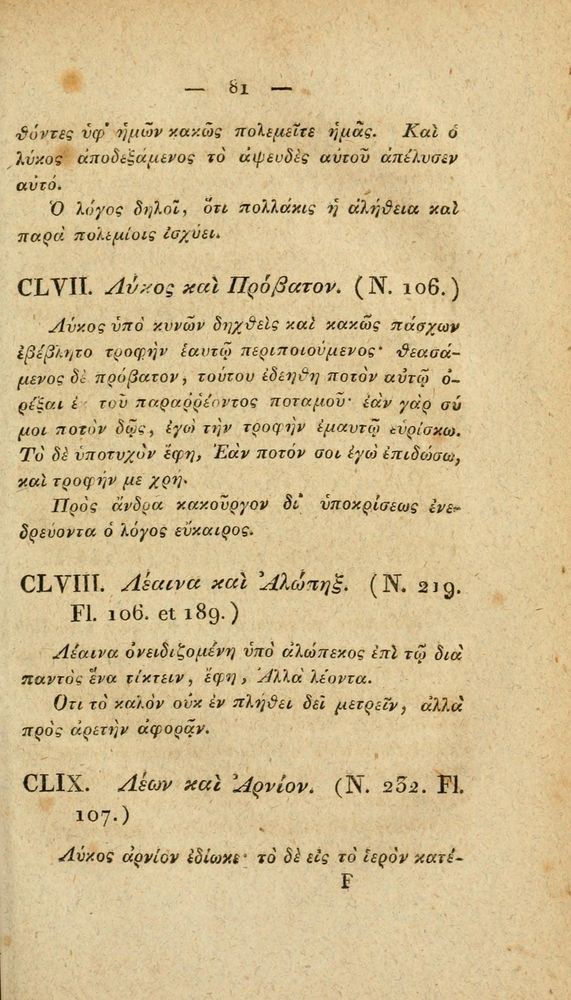 — 81 —
θόντες ὑφ' ἡμῶν κακῶς πολεμεῖτε ἡμᾶς. Καὶ ὁ
λύκος ἀποδεξάμενος τὸ ἀψευδὲς αὐτοῦ ἀπέλυσεν
αὐτό.
Ὁ λόγος δηλοῖ, ὅτι πολλάκις ἡ ἀλήθεια καὶ
παρὰ πολεμίοις ἰσχύει.
CLVII. Λύκος καὶ Πρόβατον. (N. 106.)
Λύκος ὑπὸ κυνῶν δηχθεὶς καὶ κακῶς πάσχων
ἐβέβλητο τροφὴν ἑαυτῷ περιποιούμενος· θεασά-
μενος δὲ πρόβατον, τούτου ἐδεήθη ποτὸν αὐτῷ ὀ-
ρέξαι ἐ τοῦ παραῤῥέοντος ποταμοῦ· ἐὰν γάρ σύ
μοι ποτὸν δῷς, ἐγὼ τὴν τροφὴν ἐμαυτῷ εὑρίσκω.
Τὸ δὲ ὑποτυχὸν ἔφη, Ἐὰν ποτόν σοι ἐγὼ ἐπιδώσω,
καὶ τροφήν με χρή.
Πρὸς ἄνδρα κακοῦργον δι' ὑποκρίσεως ἐνε-
δρεύοντα ὁ λόγος εὔκαιρος.
CLVIII. Λέαινα καὶ Ἀλώπηξ. (N. 219.
Fl. 106. et 189.)
Λέαινα ὀνειδιζομένη ὑπὸ ἀλώπεκος ἐπὶ τῷ διὰ
παντὸς ἕνα τίκτειν, ἔφη, Ἀλλὰ λέοντα.
Ὅτι τὸ καλὸν οὐκ ἐν πλήθει δεῖ μετρεῖν, ἀλλὰ
πρὸς ἀρετὴν ἀφορᾷν.
CLIX. Λέων καὶ Ἀρνίον. (N. 232. Fl.
107.)
Λύκος ἀρνίον ἐδίωκε· τὸ δὲ εἰς τὸ ἱερὸν κατέ-
F